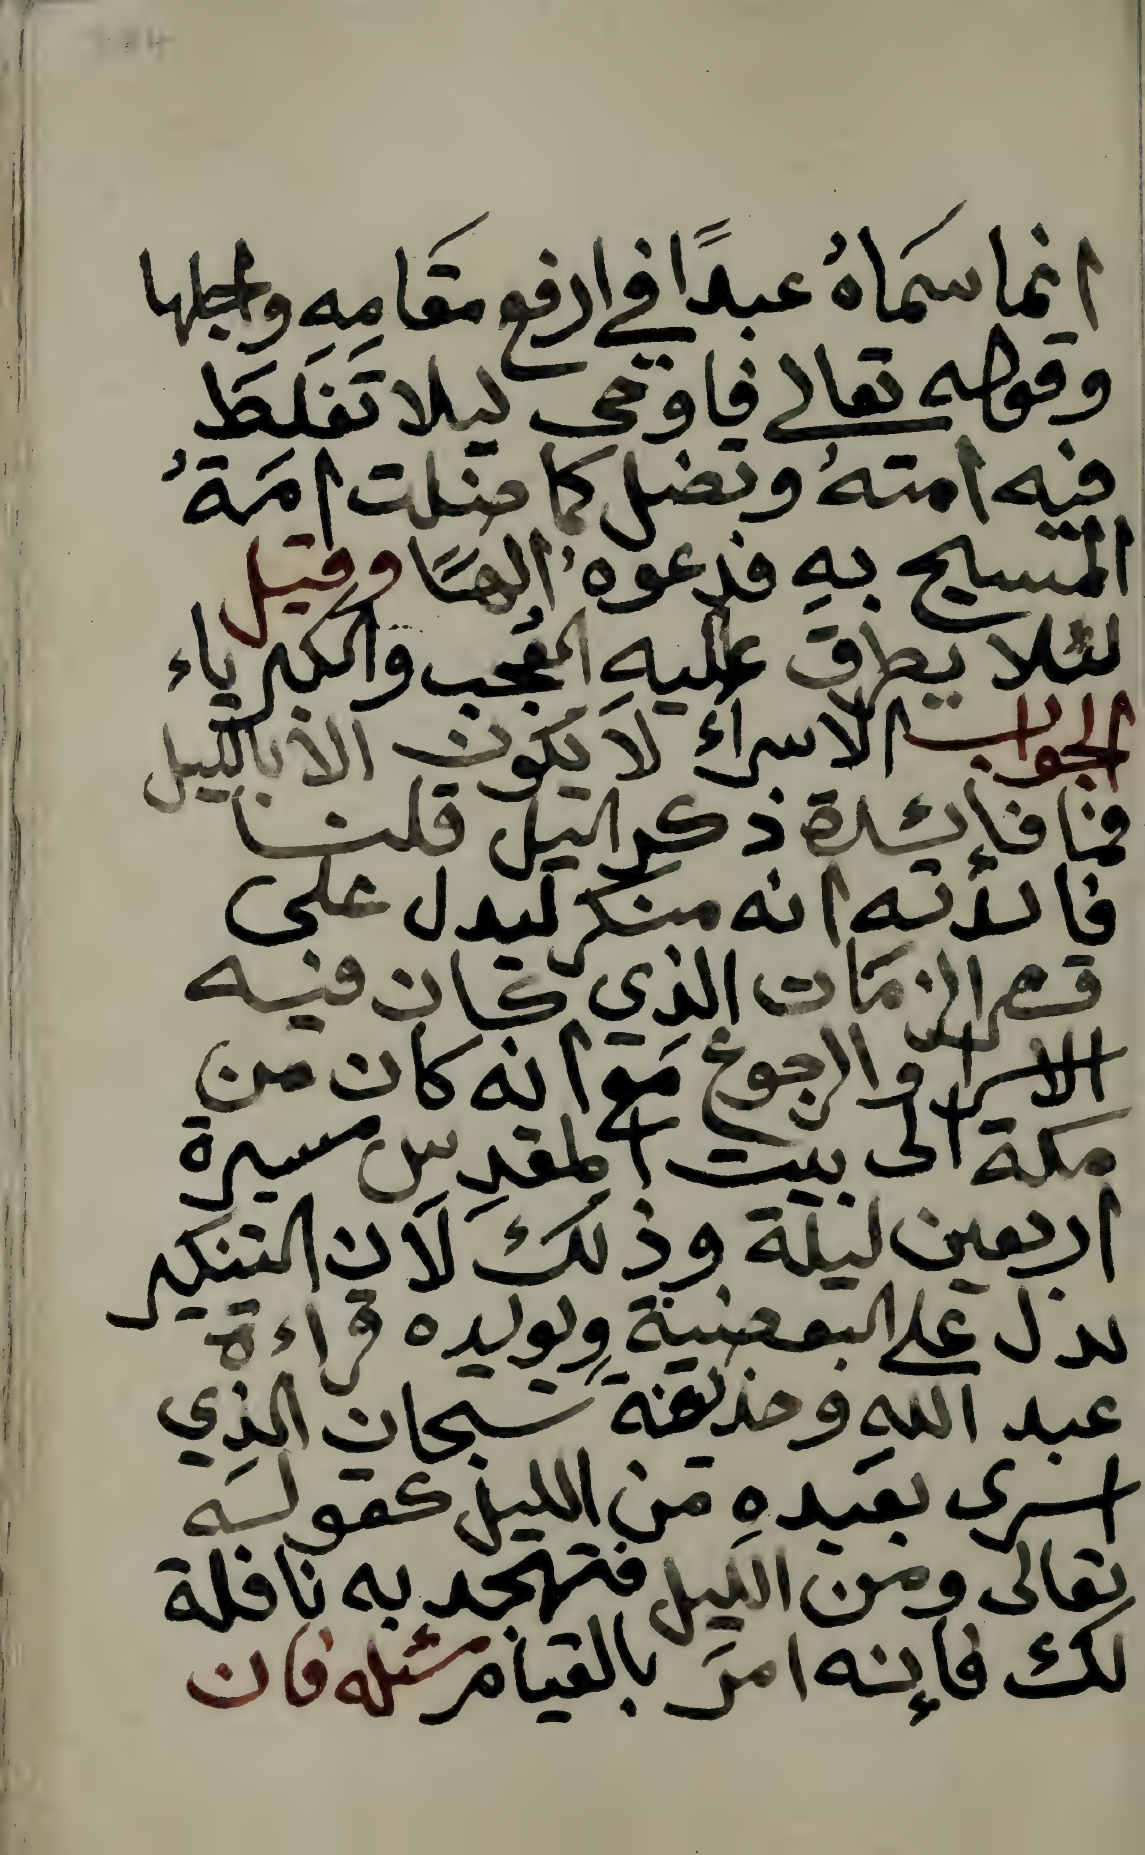 انما سَماهُ عبدًا في ارفع مقَامِهِ واجلها
وقوله تعالى فاوحى ليلا تَغلَطَ
فيه امتهُ وتضل كما ضلت امَةُ
المسيح بهِ فدعوه الهًا وقيل
لئلا يطرق عليه العُجب والكبرياء
الجواب الاسراء لاَ يكون الا بالليل
فما فائدة ذكر اليل قلنا
فائدته انه منكر ليدل على
قصر الزمَان الذي كان فيه
الاسرا والرجوع مَع انه كان من
مكة الى بيت المقدِس مسيرة
اربعين ليلة وذلك لاَن التنكير
يدل على البعضية ويويده قراءة
عبد اللهِ وحذيفة سبحان الذِي
اسرى بعَبده من الليل كقوله
تعالى ومن الليل فتهجد به نافلة
لك فإنه امرَ بالقيام مسئله فان